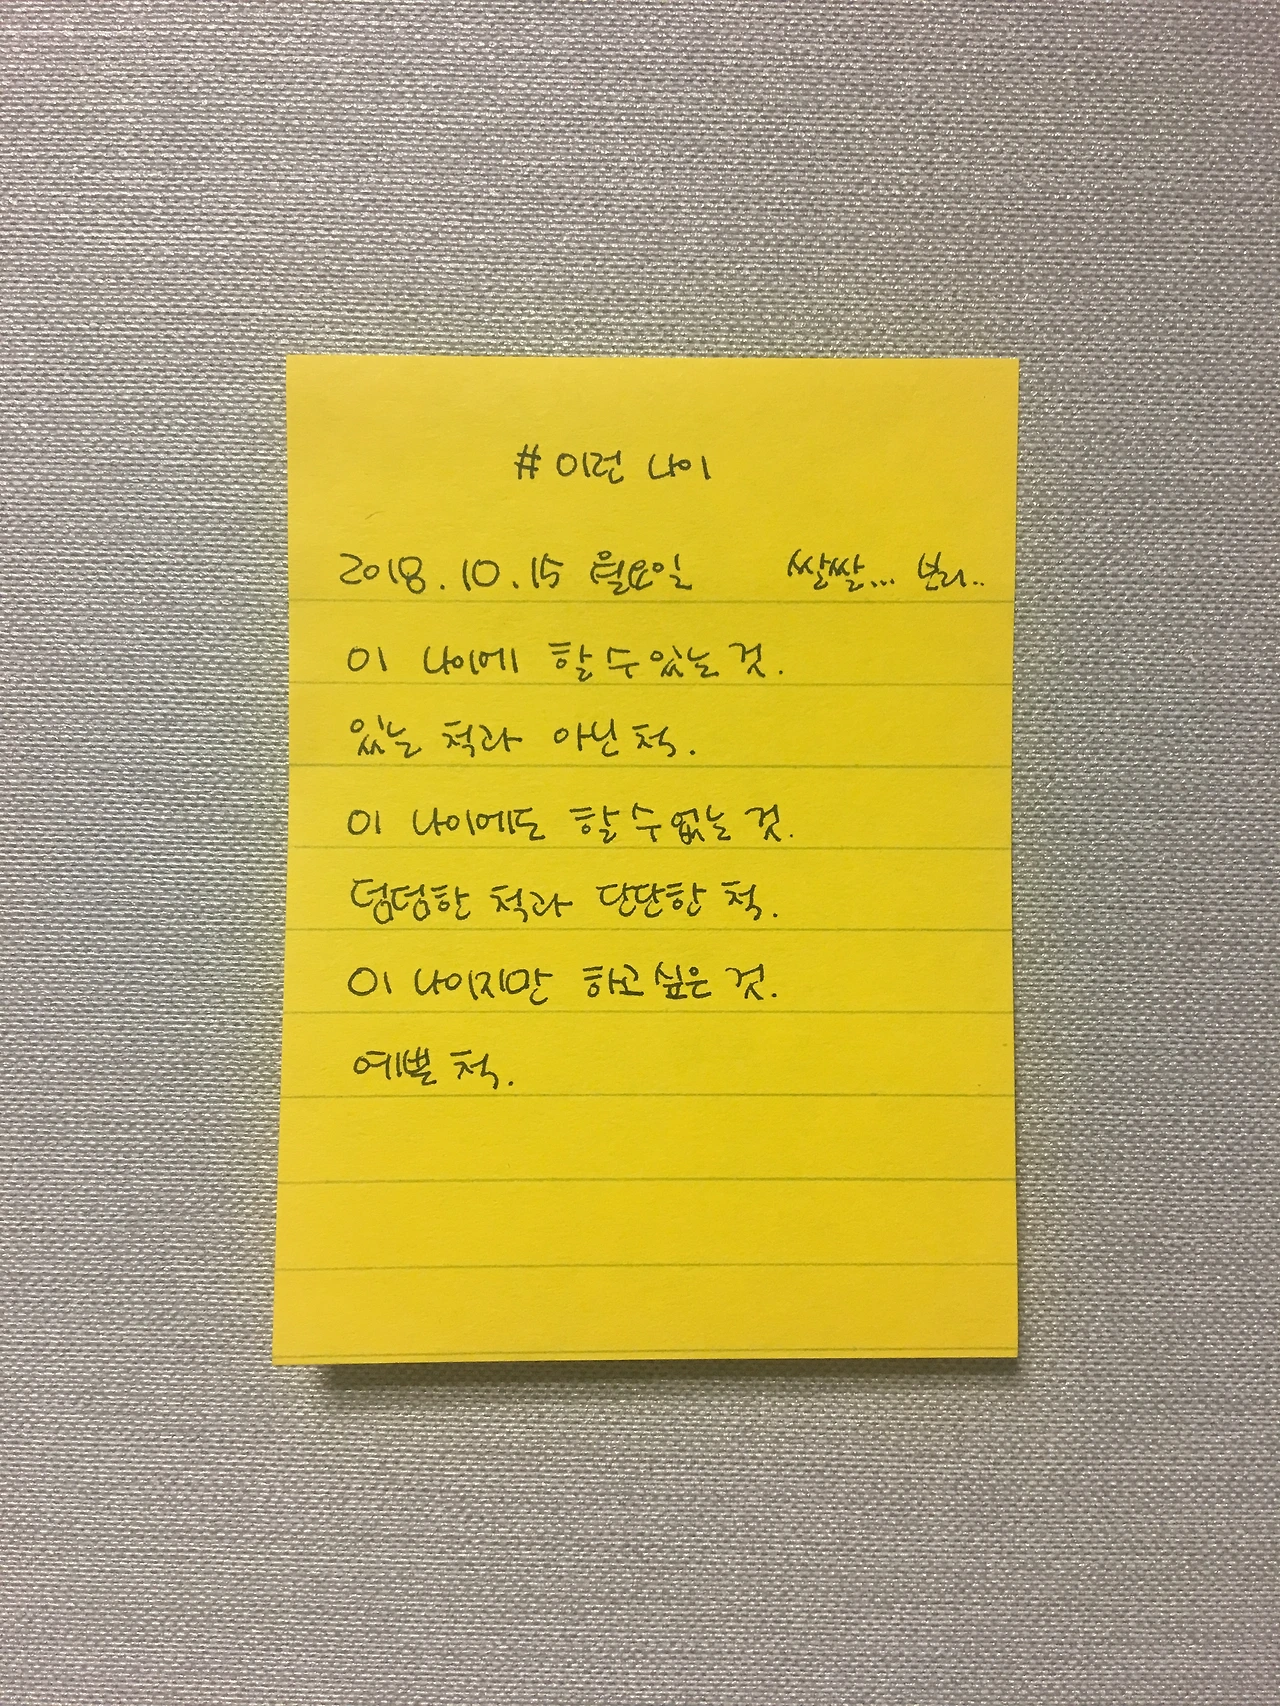 # 이런 나이
2018.10.15 월요일 쌀쌀... 분다..
이 나이에 할 수 있는 것.
있는 척과 아닌 척.
이 나이에도 할 수 없는 것.
덤덤한 척과 단단한 척.
이 나이지만 하고 싶은 것.
예쁠 척.